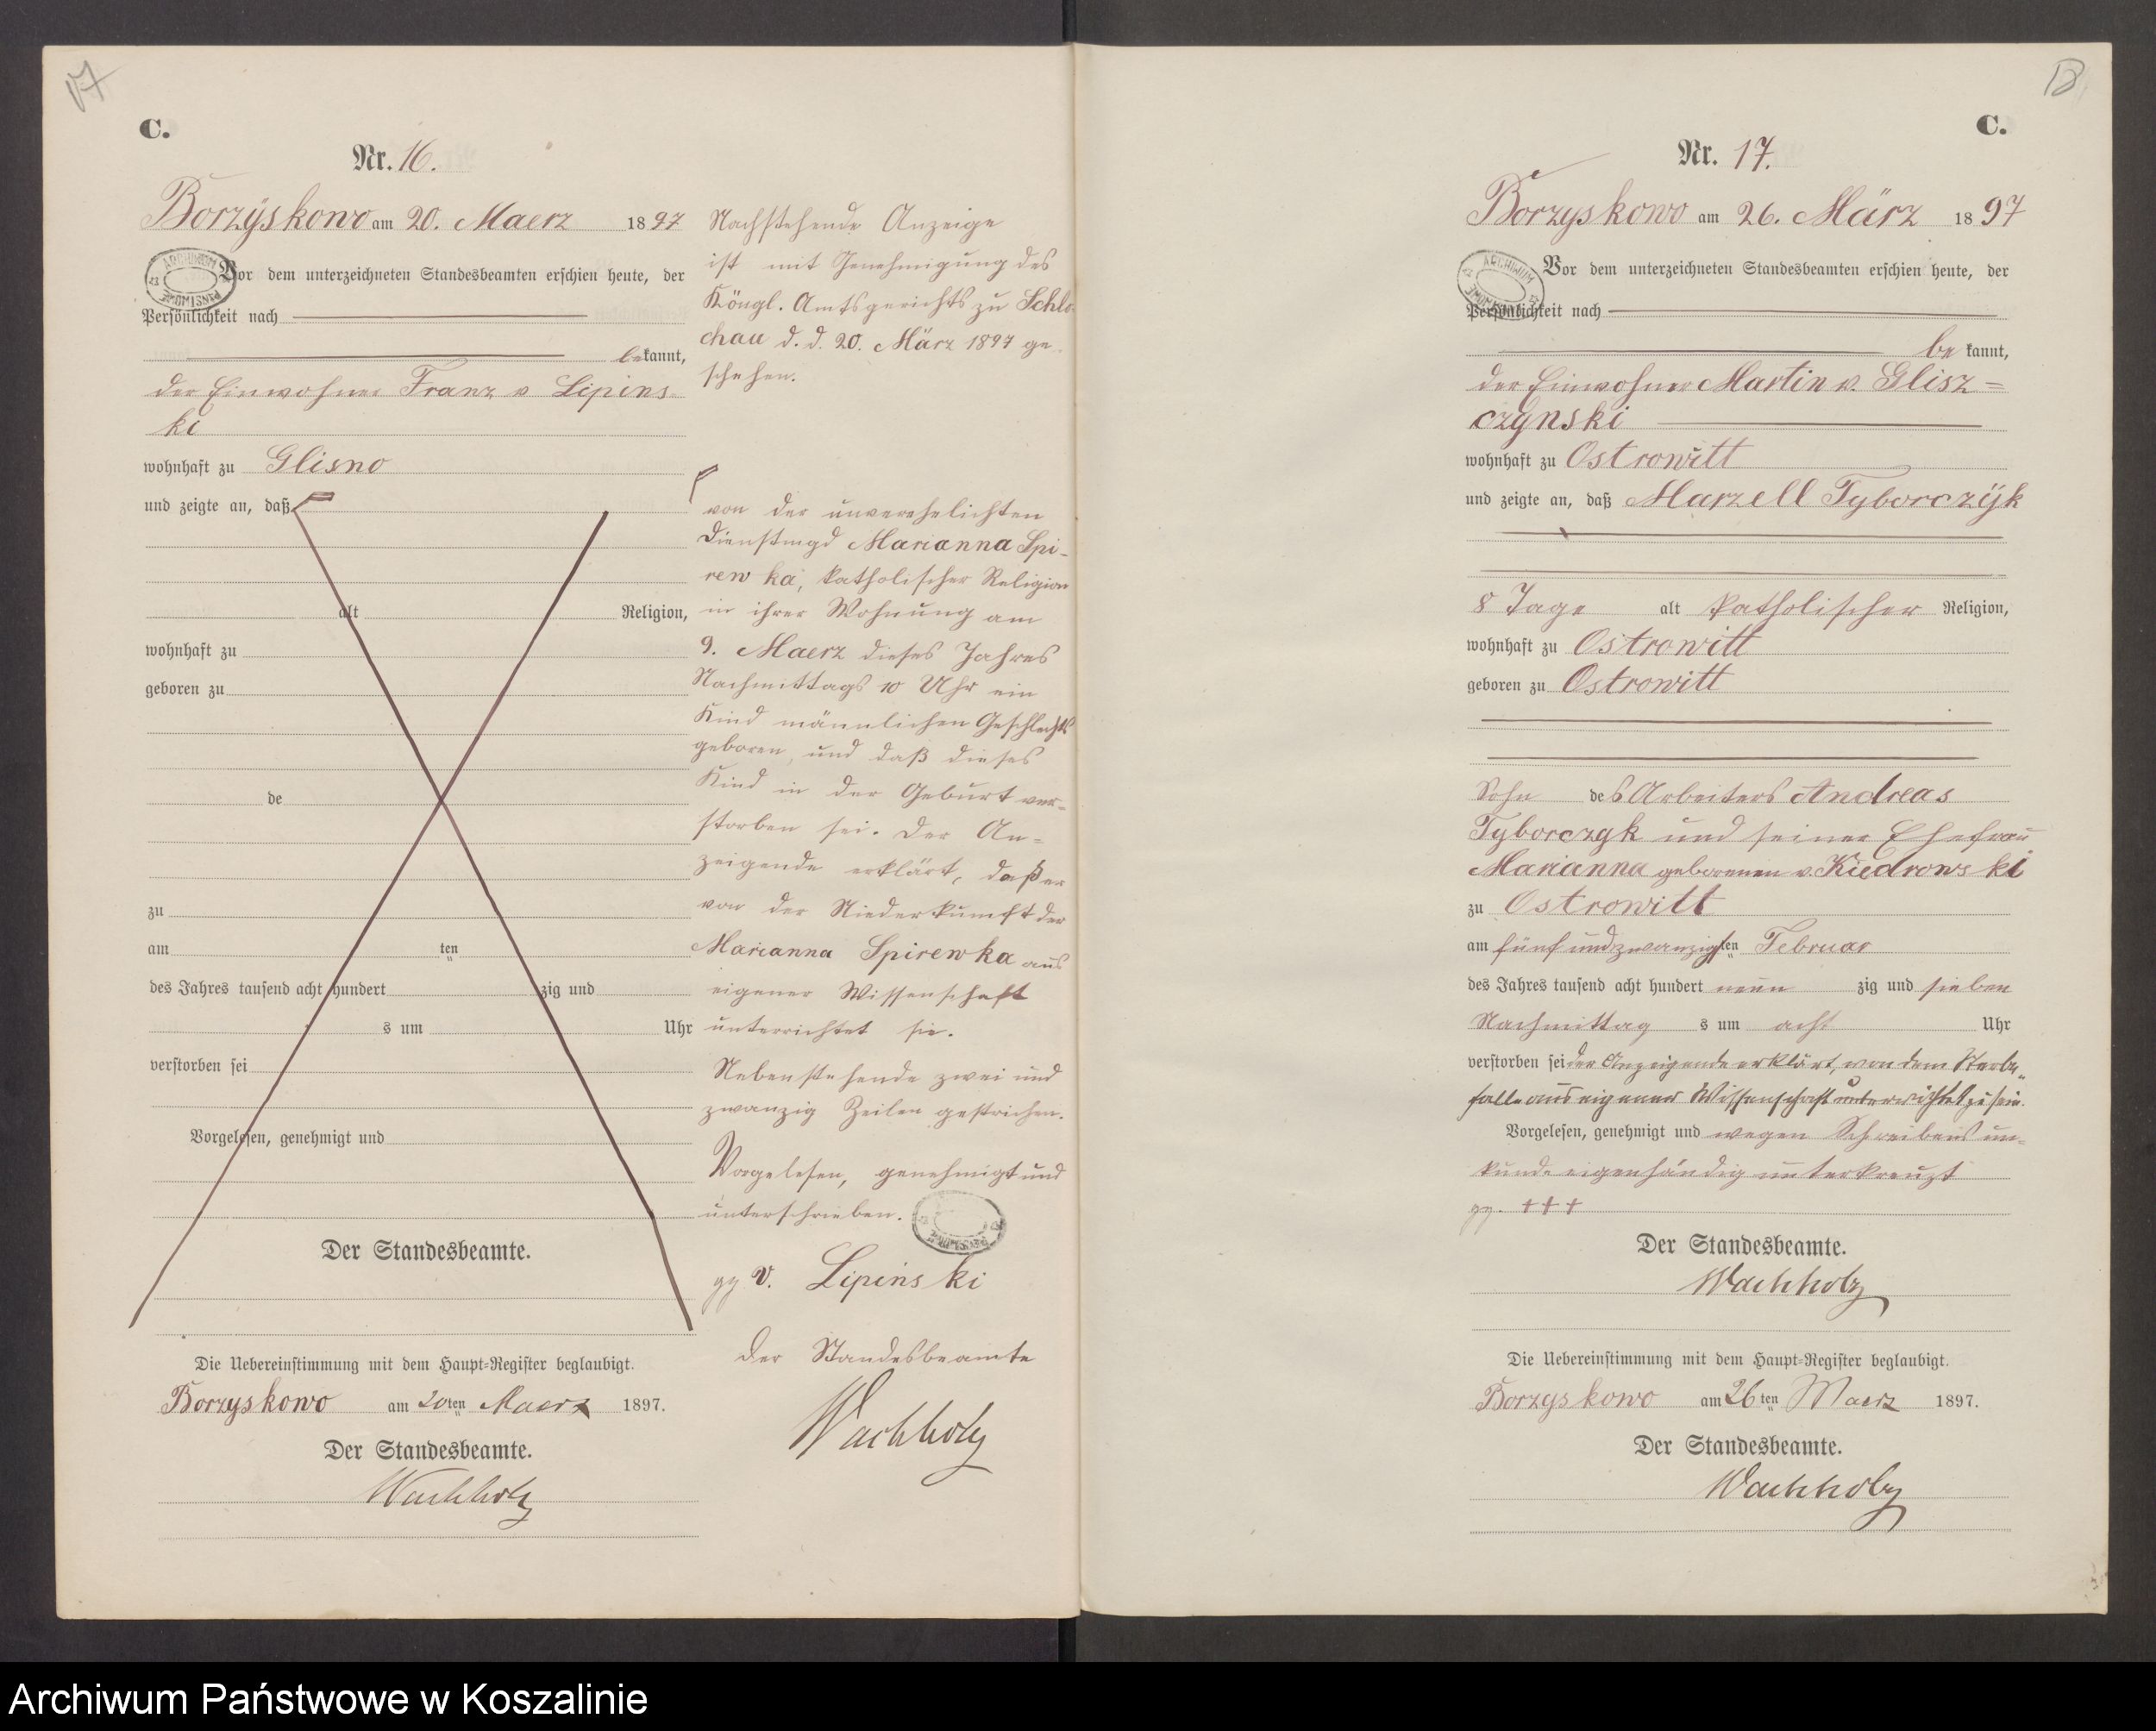 17
C.
Nr. 16.
Borzyskowo am 20. Maerz 1897
Vor dem unterzeichneten Standesbeamten erschien heute, der
Persönlichkeit nach
bekannt,
der Einwohner Franz v Lipins-
ki
wohnhaft zu Glisno
und zeigte an, daß
alt Religion,
wohnhaft zu
geboren zu
de
zu
am ten
des Jahres tausend acht hundert zig und
s um Uhr
verstorben sei
Vorgelesen, genehmigt und
Der Standesbeamte.
Die Uebereinstimmung mit dem Haupt-Register beglaubigt.
Borzyskowo am 20ten Maerz 1897.
Der Standesbeamte.
Wachholz
Nachstehende Anzeige
ist mit Genehmigung des
Köngl. Amtsgerichts zu Schlo-
chau d. d. 20. März 1897 ge-
schehen.
von der unverehelichten
Dienstmgd Marianna Spi-
rewka, katholischer Religion
in ihrer Wohnung am
9. Maerz dieses Jahres
Nachmittags 10 Uhr ein
Kind männlichen Geschlechts
geboren, und daß dieses
Kind in der Geburt ver-
storben sei. Der An-
zeigende erklärt, daß er
von der Niederkunft der
Marianna Spirewka aus
eigener Wissenschaft
unterrichtet sie.
Nebenstehende zwei und
zwanzig Zeilen gestrichen.
Vorgelesen, genehmigt und
unterschrieben.
gz v. Lipinski
Der Standesbeamte
Wachholz
C.
Nr. 17.
Borzyskowo am 26. März 1897
ARCHIWUM PAŃSTWOWE
Vor dem unterzeichneten Standesbeamten erschien heute, der
Persönlichkeit nach
be kannt,
der Einwohner Martin v. Glisz=
czynski
wohnhaft zu Ostrowitt
und zeigte an, daß Marzell Tyborczÿk
8 Tage alt katholischer Religion,
wohnhaft zu Ostrowitt
geboren zu Ostrowitt
Sohn des Arbeiters Andreas
Tyborczyk und seiner Ehefrau
Marianna geborenen v. Kiedrowski
zu Ostrowitt
am fünfundzwanzigsten Februar
des Jahres tausend acht hundert neun zig und sieben
Nachmittag s um acht Uhr
verstorben sei der Anzeigende erklärt, von dem Sterbe-
falle aus eigener Wissenschaft unterrichtet zu sein.
Vorgelesen, genehmigt und wegen Schreibens un-
kunde eigenhändig unterkreuzt
gz. + + +
Der Standesbeamte.
Wachholz
Die Uebereinstimmung mit dem Haupt-Register beglaubigt.
Borzyskowo am 26ten Maerz 1897.
Der Standesbeamte.
Wachholz
Archiwum Państwowe w Koszalinie